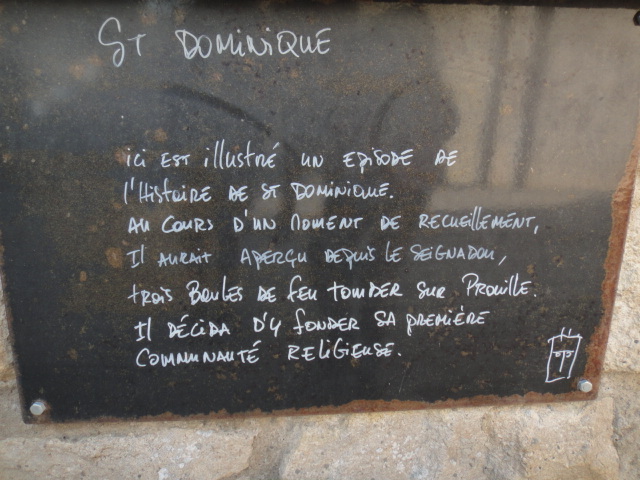 St DOMINIQUE
ici EST illustré UN EPISODE DE
l'Histoire DE St DOMINIQUE.
AU COURS D'UN MOMENT DE RECUEillEMENT,
Il AURAIT APERÇU DEPUIS LE SEIGNADOU,
trois Boules DE feu TOMBER SUR PROUILLE.
Il DÉCIDA D'Y FONDER SA PREMIÈRE
COMMUNAUTÉ RELIGIEUSE.